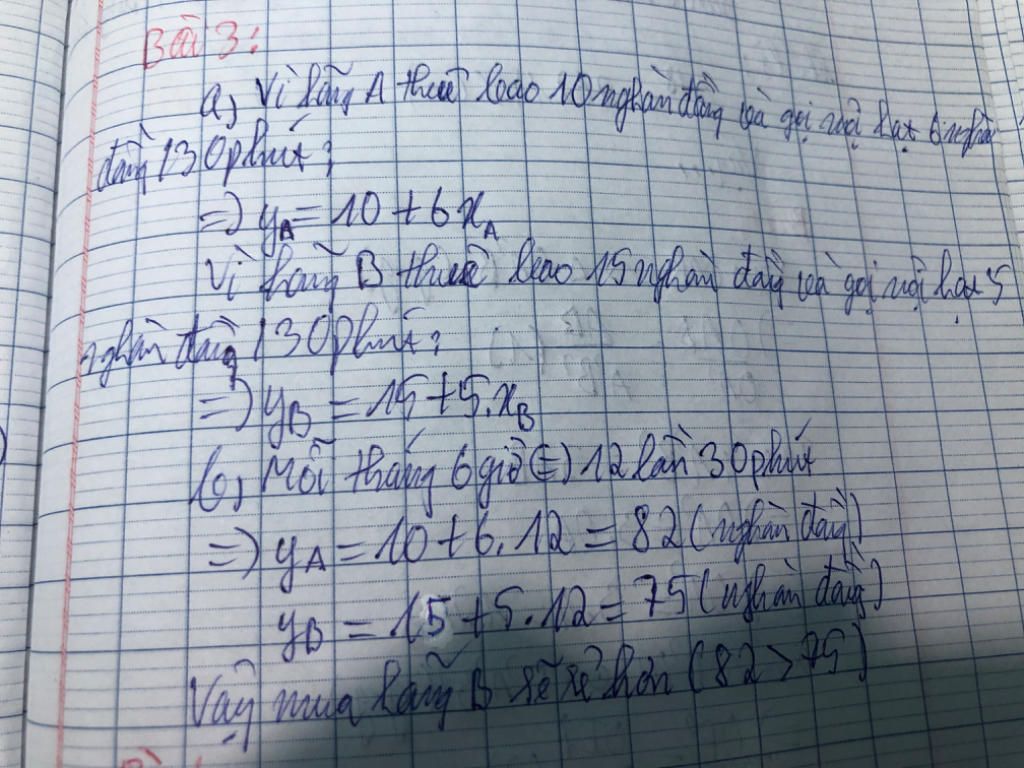 Bài 3:
a, Vì hãng A thuê bao 10 nghàn đồng và gọi nội hạt 6 nghàn
đồng /30phút:
=) yA = 10 + 6xA
Vì hãng B thuê bao 15 nghàn đồng và gọi nội hạt 5
nghàn đồng /30phút:
=) yB = 15 + 5.xB
b, Mỗi tháng 6 giờ (=) 12 lần 30phút
=) yA = 10 + 6.12 = 82 (nghàn đồng)
yB = 15 + 5.12 = 75 (nghàn đồng)
Vậy mua hãng B sẽ rẻ hơn (82 > 75)